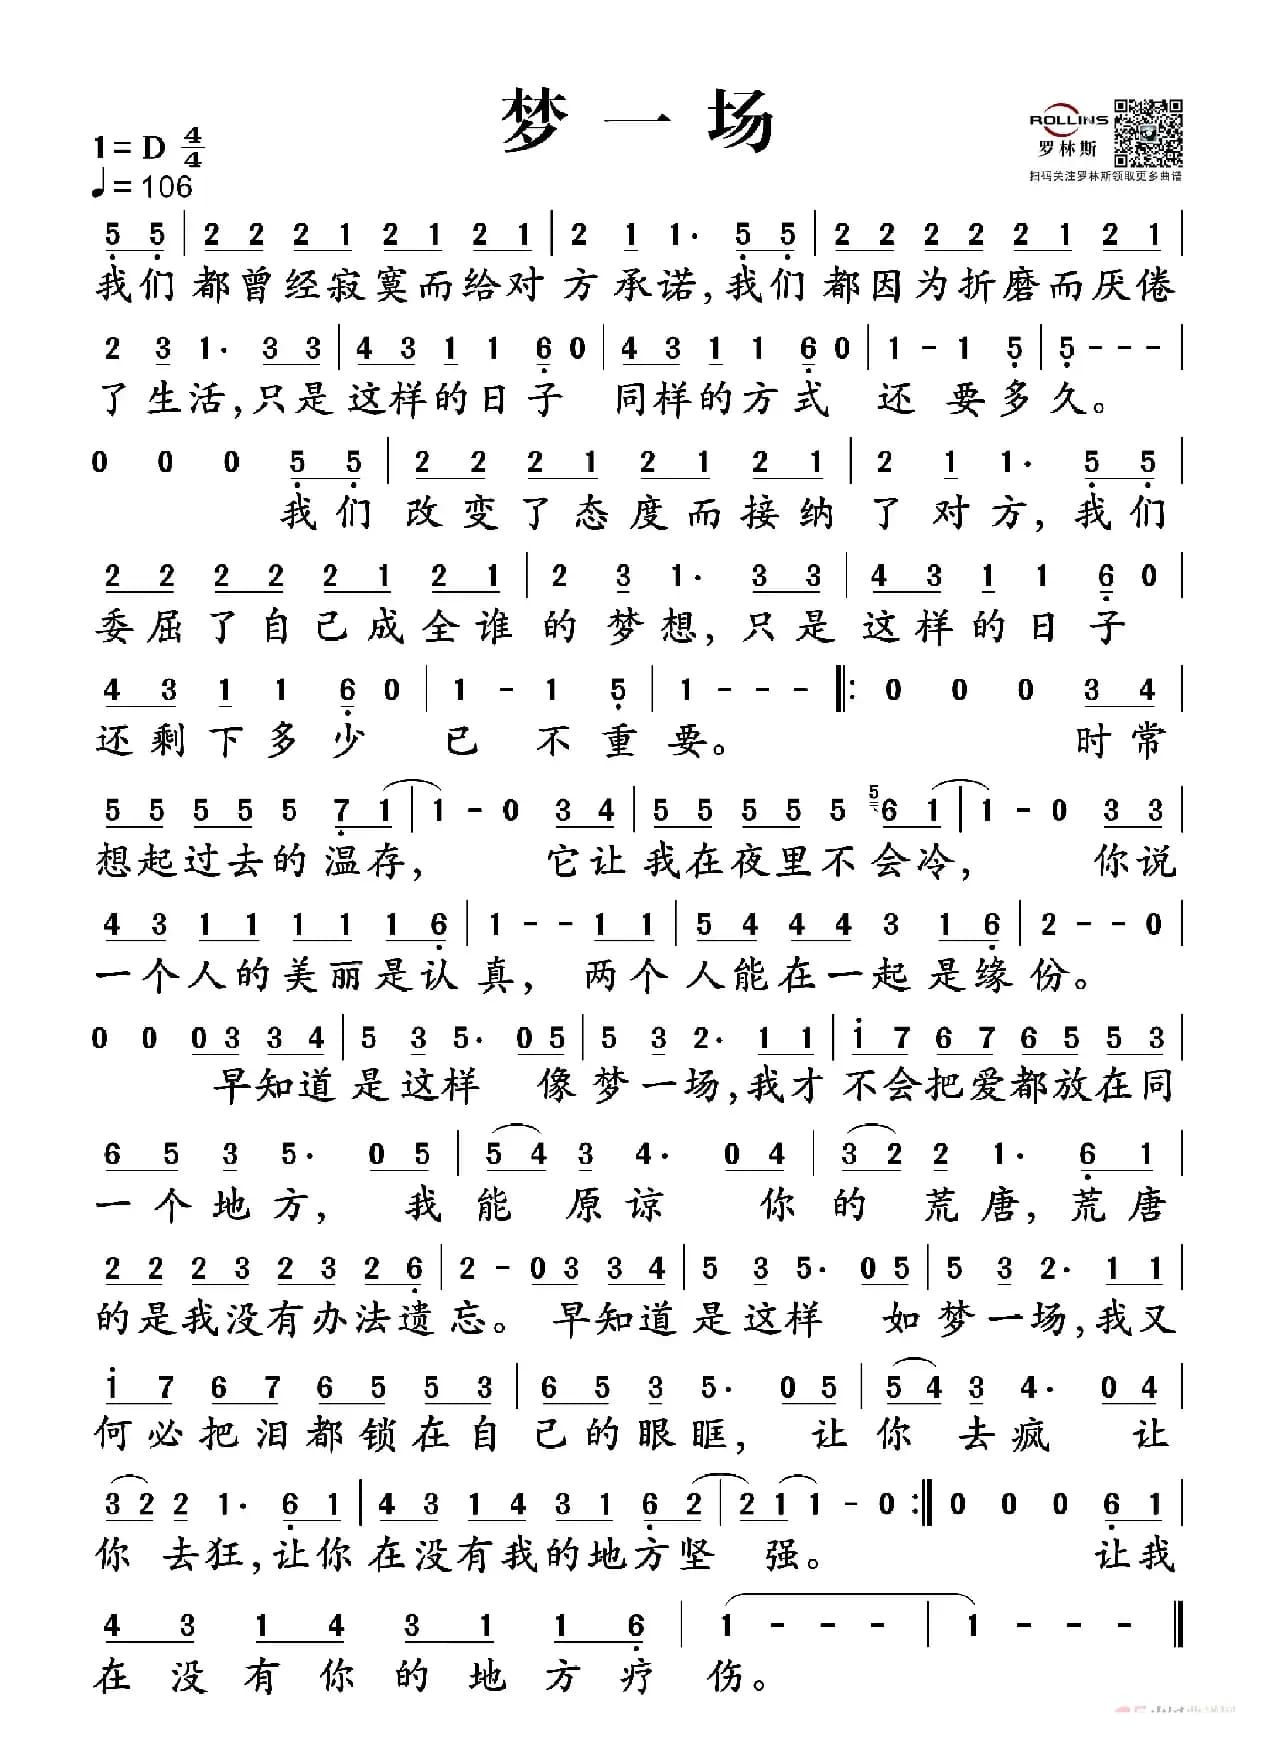 梦一场
1=D 4/4
♩=106
ROLLINS
罗林斯
扫码关注罗林斯领取更多曲谱
5 5 | 2 2 2 1 2 1 2 1 | 2 1 1· 5 5 | 2 2 2 2 2 1 2 1 |
我们都曾经寂寞而给对方承诺,我们都因为折磨而厌倦
2 3 1· 3 3 | 4 3 1 1 6 0 | 4 3 1 1 6 0 | 1 - 1 5 | 5 - - - |
了生活,只是这样的日子 同样的方式 还要多久。
0 0 0 5 5 | 2 2 2 1 2 1 2 1 | 2 1 1· 5 5 |
我们改变了态度而接纳了对方,我们
2 2 2 2 2 1 2 1 | 2 3 1· 3 3 | 4 3 1 1 6 0 |
委屈了自己成全谁的梦想,只是这样的日子
4 3 1 1 6 0 | 1 - 1 5 | 1 - - - ‖: 0 0 0 3 4 |
还剩下多少 已不重要。 时常
5 5 5 5 5 7 1 | 1 - 0 3 4 | 5 5 5 5 5 5 6 1 | 1 - 0 3 3 |
想起过去的温存, 它让我在夜里不会冷, 你说
4 3 1 1 1 1 1 6 | 1 - - 1 1 | 5 4 4 4 3 1 6 | 2 - - 0 |
一个人的美丽是认真, 两个人能在一起是缘份。
0 0 0 3 3 4 | 5 3 5· 0 5 | 5 3 2· 1 1 | i 7 6 7 6 5 5 3 |
早知道是这样 像梦一场,我才不会把爱都放在同
6 5 3 5· 0 5 | 5 4 3 4· 0 4 | 3 2 2 1· 6 1 |
一个地方, 我能原谅 你的荒唐,荒唐
2 2 2 3 2 3 2 6 | 2 - 0 3 3 4 | 5 3 5· 0 5 | 5 3 2· 1 1 |
的是我没有办法遗忘。早知道是这样 如梦一场,我又
i 7 6 7 6 5 5 3 | 6 5 3 5· 0 5 | 5 4 3 4· 0 4 |
何必把泪都锁在自己的眼眶, 让你去疯 让
3 2 2 1· 6 1 | 4 3 1 4 3 1 6 2 | 2 1 1 - 0 :‖ 0 0 0 6 1 |
你去狂,让你在没有我的地方坚强。 让我
4 3 1 4 3 1 1 6 | 1 - - - | 1 - - - ‖
在没有你的地方疗伤。